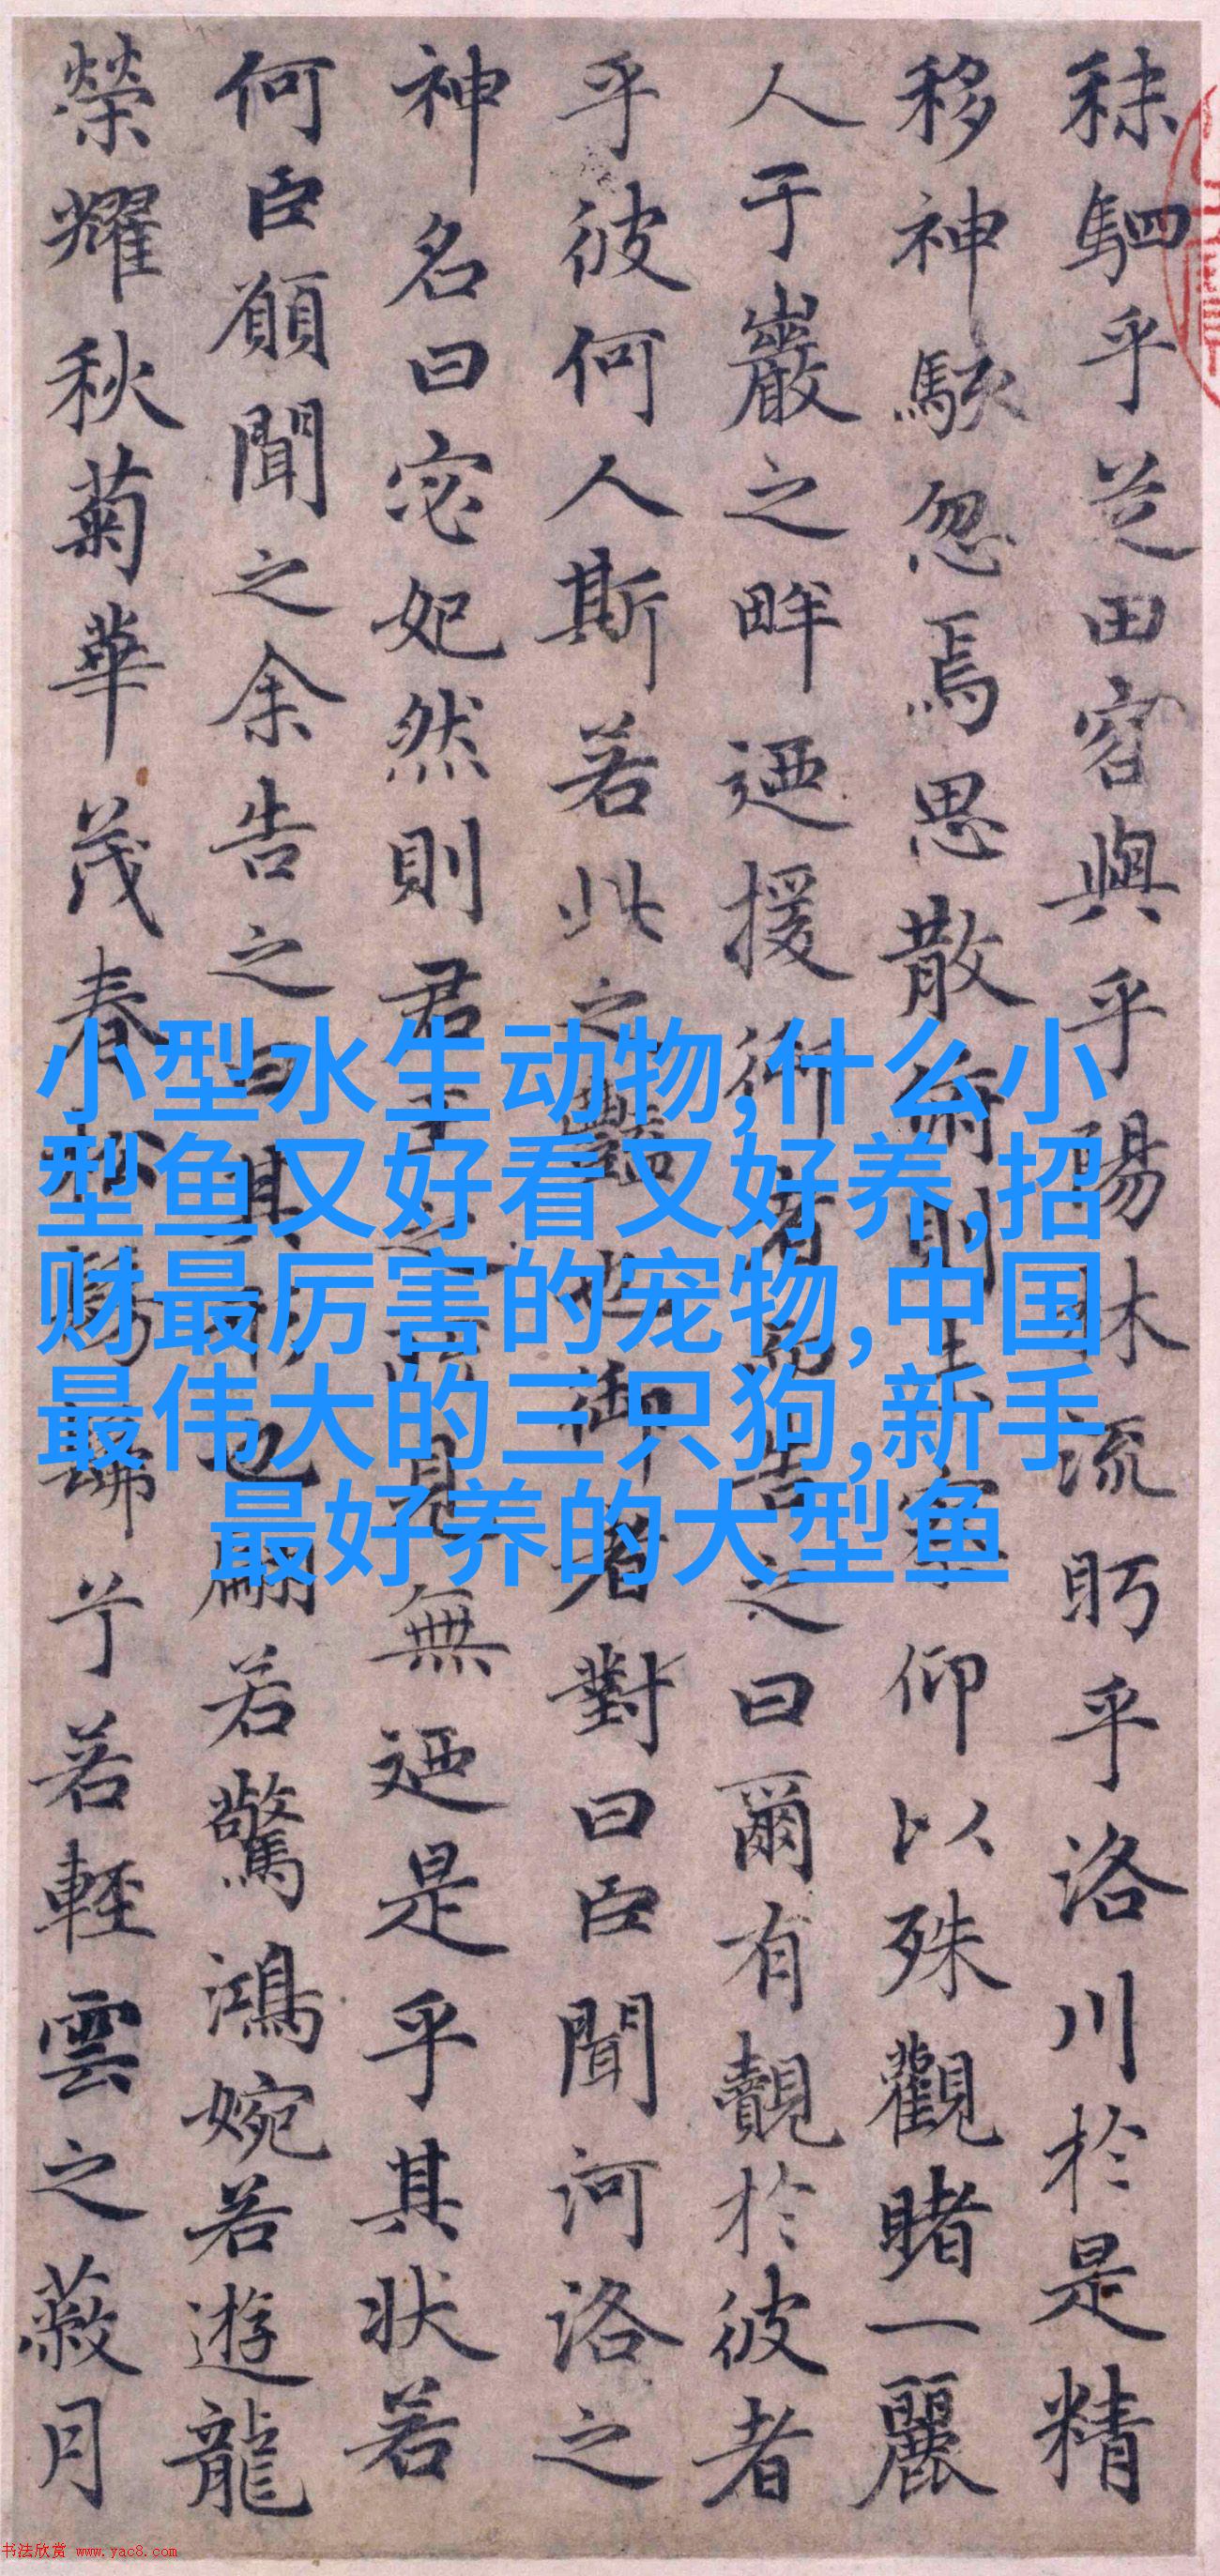 秣駟乎芝田容與乎陽林流眄乎洛川於是精
移神駭忽焉思散俯則未察仰以殊觀睹一麗
人于巖之畔迺援御者而告之曰爾有覿於彼者
乎彼何人斯若此之豔也御者對曰臣聞河洛之
神名曰宓妃然則君王之所見無迺是乎其状若
何臣願聞之余告之曰其形也翩若驚鴻婉若遊龍
榮耀秋菊華茂春松髣髴兮若輕雲之蔽月
小型水生动物,什么小
型鱼又好看又好养,招
财最厉害的宠物,中国
最伟大的三只狗,新手
最好养的大型鱼
书法欣赏 www.yac8.com